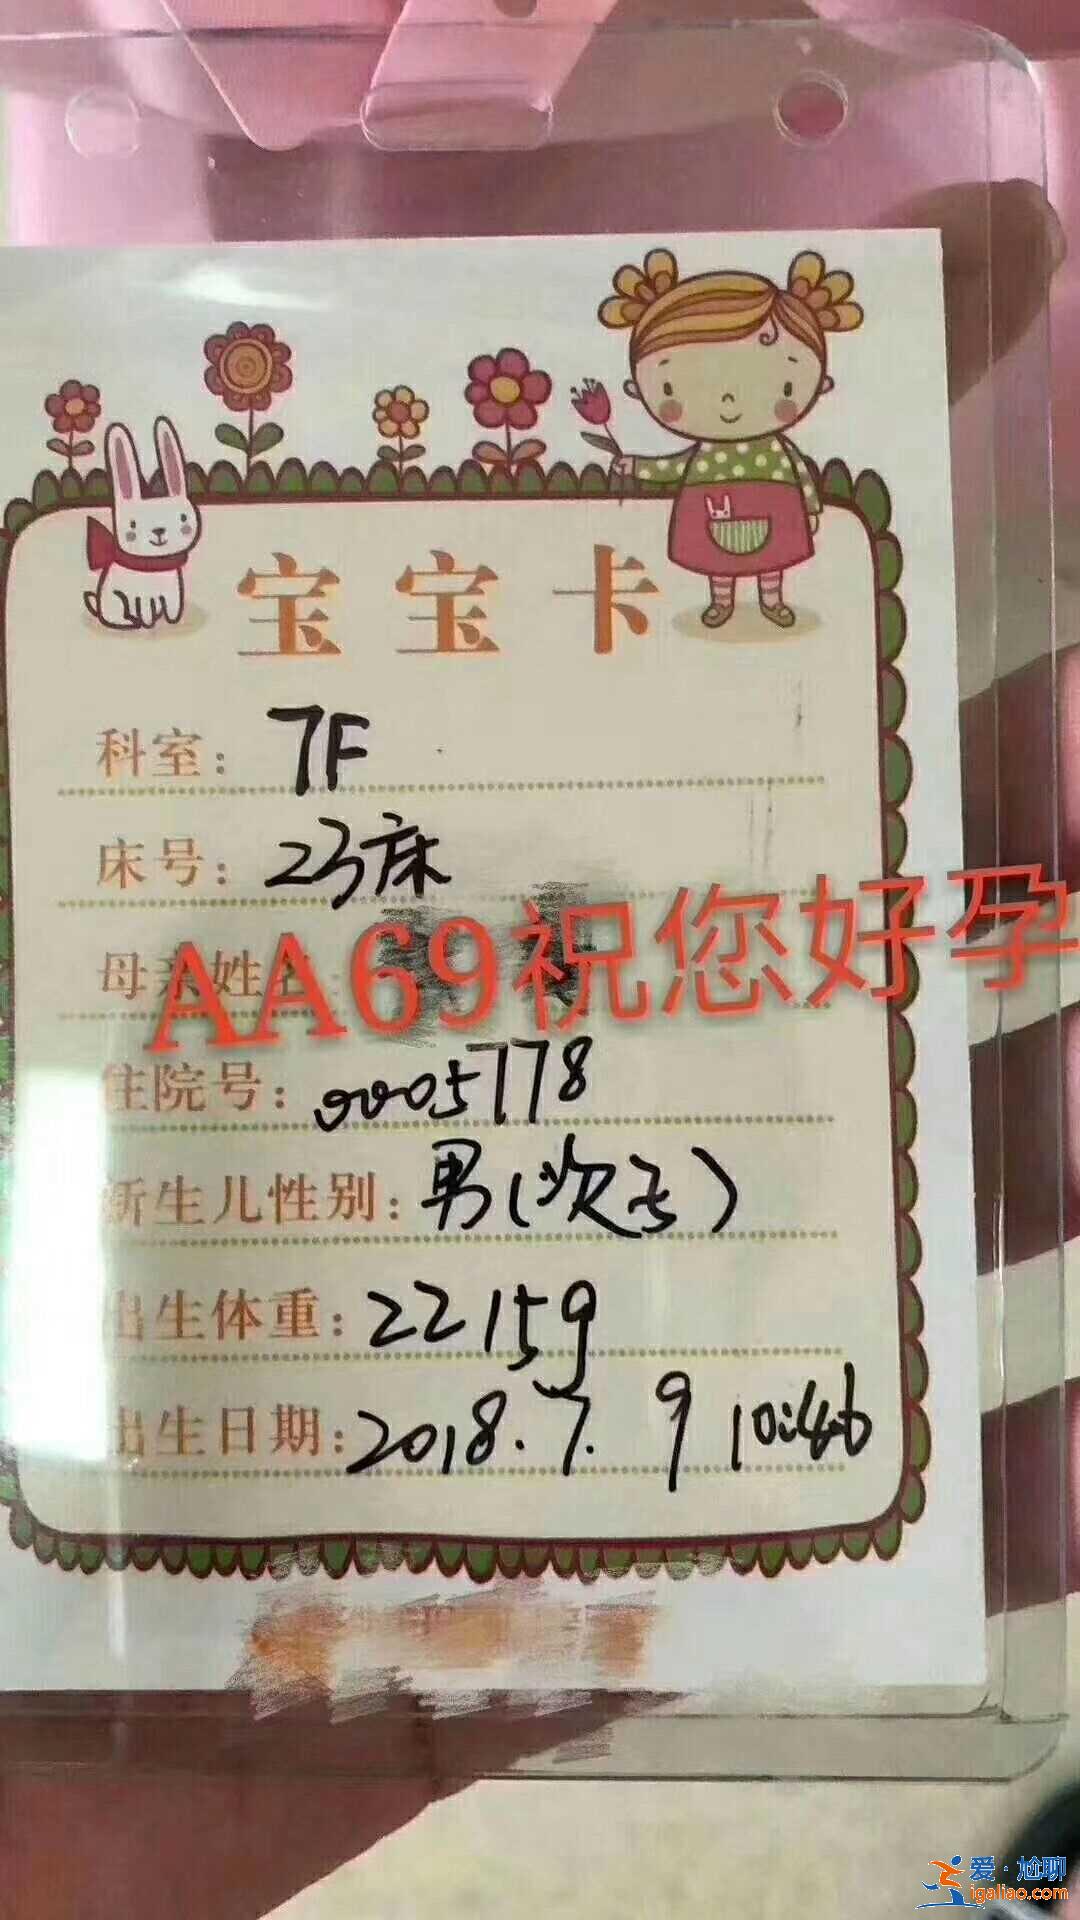 宝宝卡
科室: 7F
床号: 23床
母亲姓名:
AA69祝您好孕
住院号: 0005778
新生儿性别: 男(次子)
出生体重: 2215g
出生日期: 2018.7.9 10:46
爱·尬聊
igaliao.com